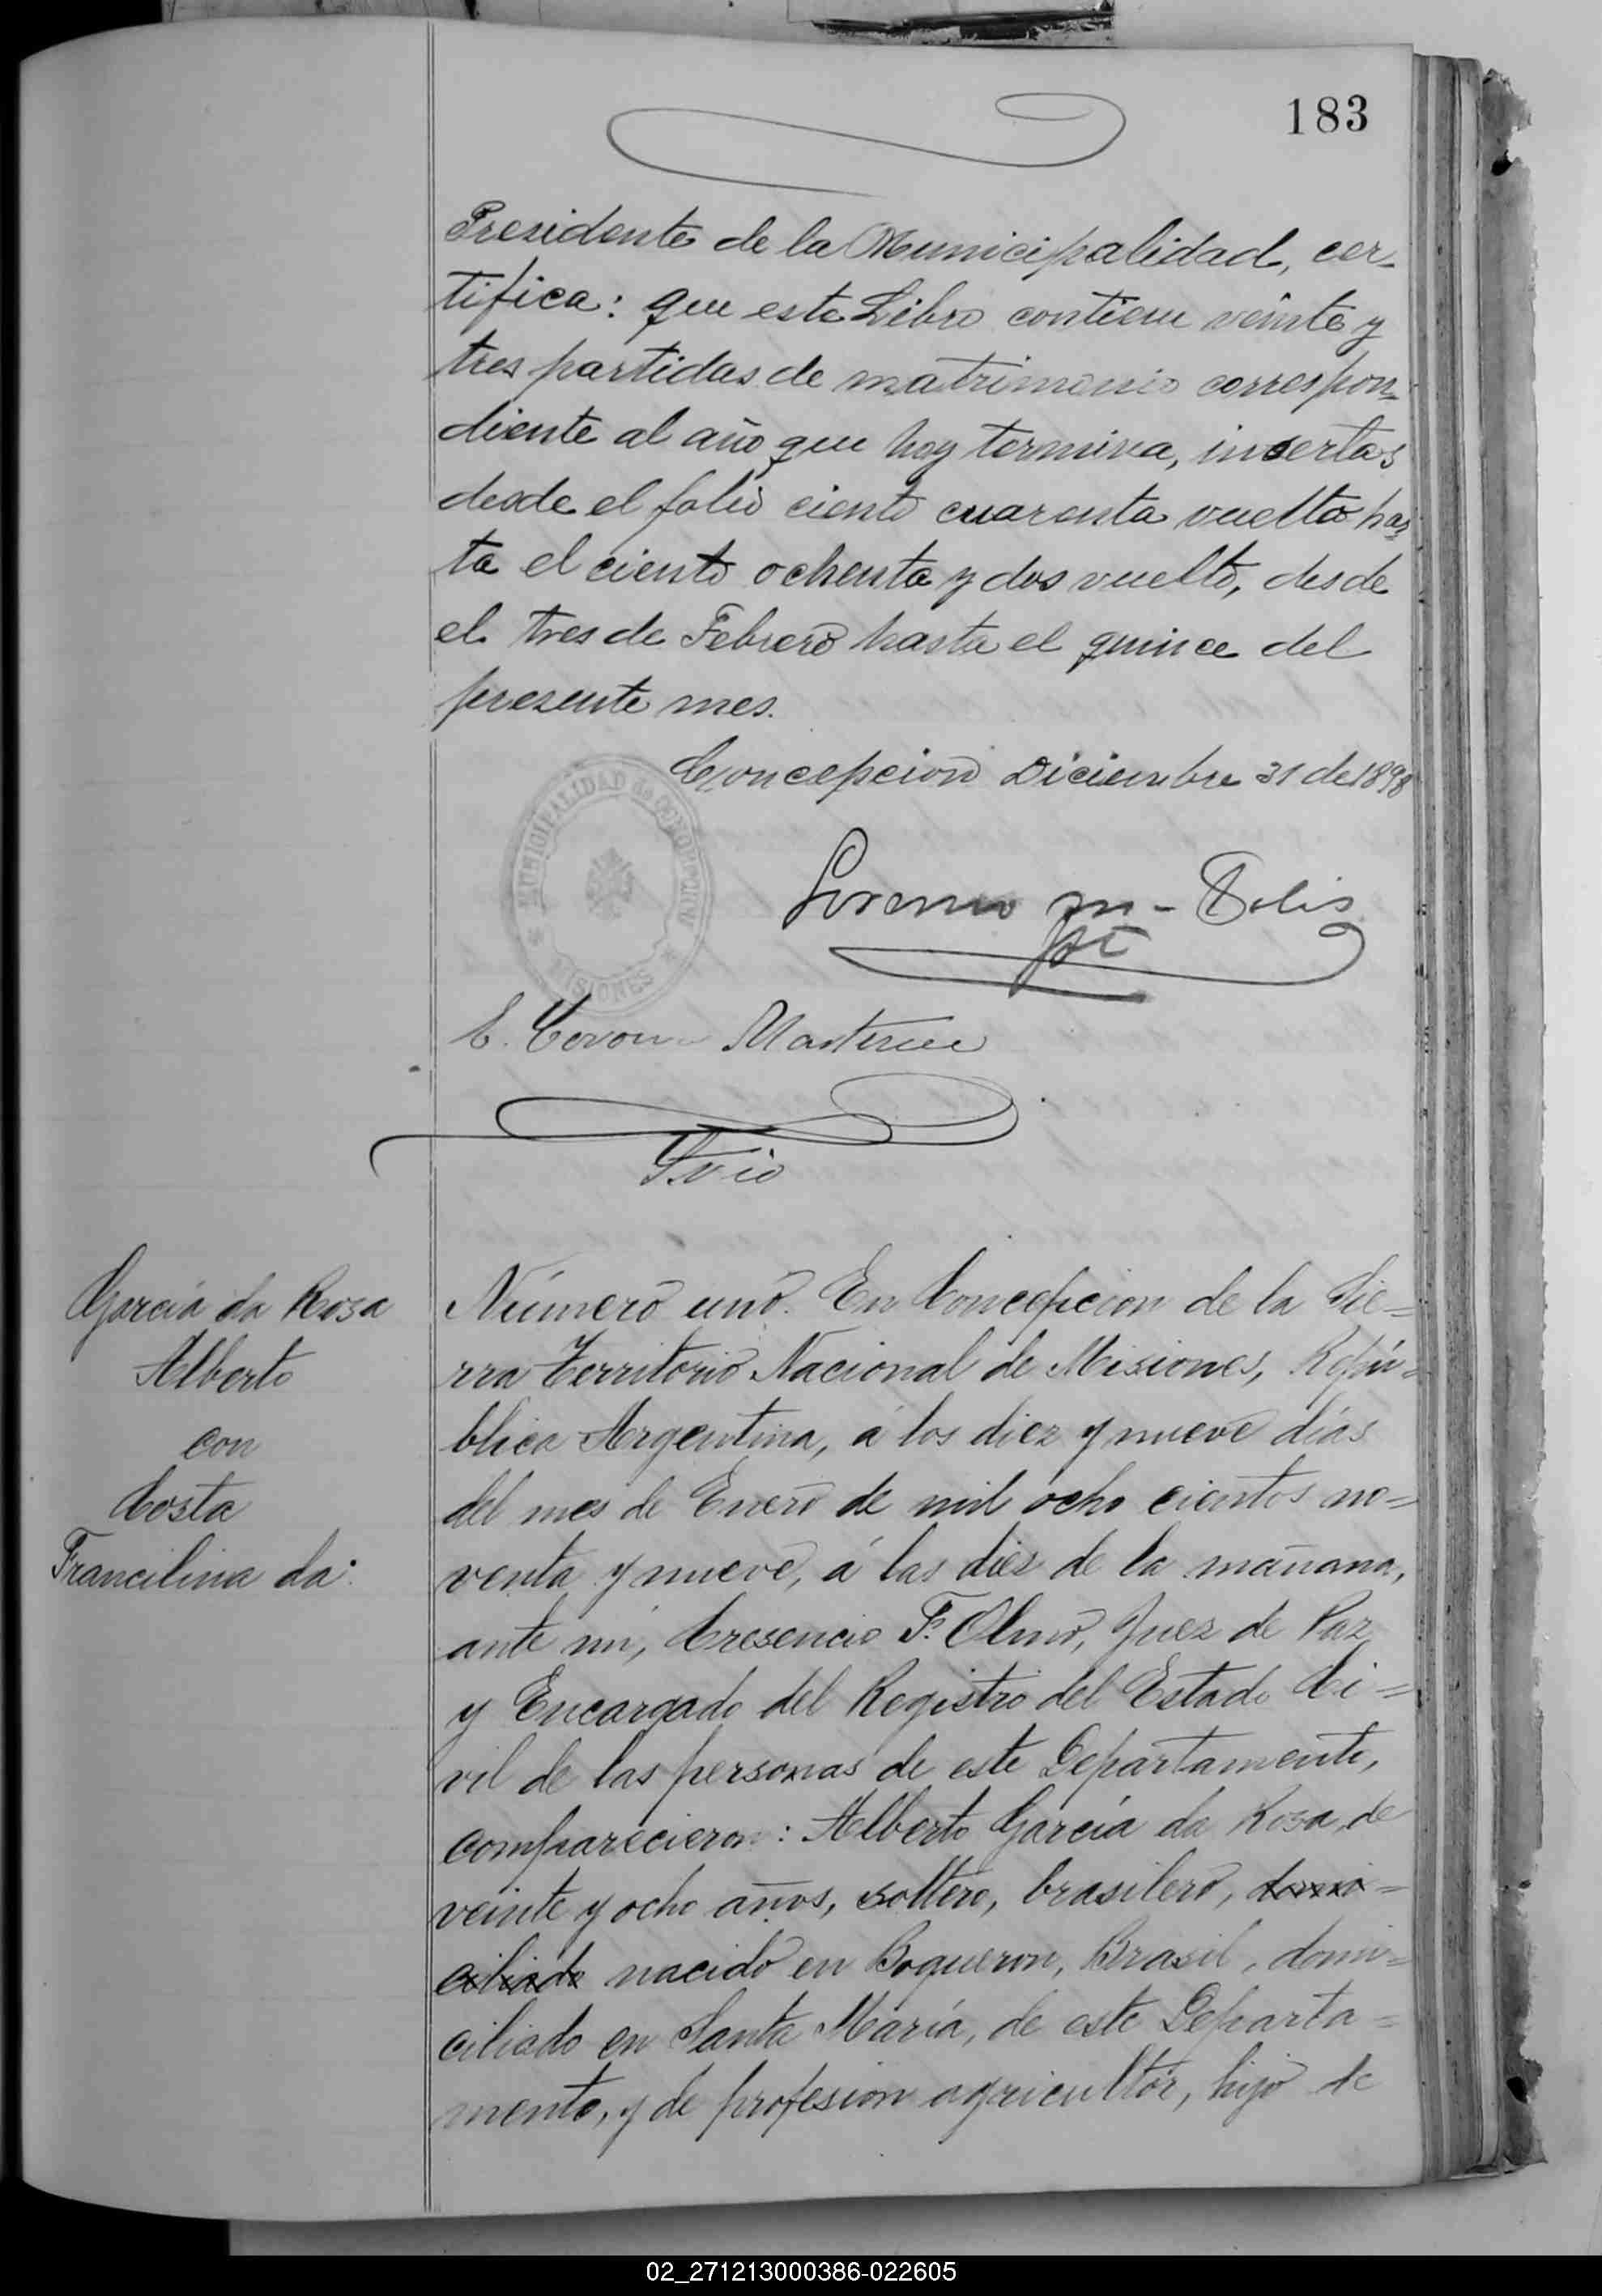 183
Presidente de la Municipalidad, cer-
tifica: que este Libro contiene veinte y
tres partidas de matrimonio correspon-
diente al año que hoy termina, insertas
desde el folio ciento cuarenta vuelto has
ta el ciento ochenta y dos vuelto, desde
el tres de Febrero hasta el quince del
presente mes.
Concepcion Diciembre 31 de 1898
MUNICIPALIDAD de CONCEPCION
MISIONES
m - Solis
E. Martinez
Srio
García da Rosa
Alberto
con
Costa
Francilina da.
Número uno. En Concepcion de la Sie=
rra Territorio Nacional de Misiones, Repú=
blica Argentina, á los diez y nueve días
del mes de Enero de mil ocho cientos no=
venta y nueve, á las diez de la mañana,
ante mí, Cresencio F. Olmo, Juez de Paz
y Encargado del Registro del Estado Ci=
vil de las personas de este Departamento,
comparecieron: Alberto García da Rosa, de
veinte y ocho años, soltero, brasilero, domi=
ciliado nacido en Boqueron, Brasil, domi=
ciliado en Santa María, de este Departa=
mento, y de profesion agricultor, hijo de
02_271213000386-022605